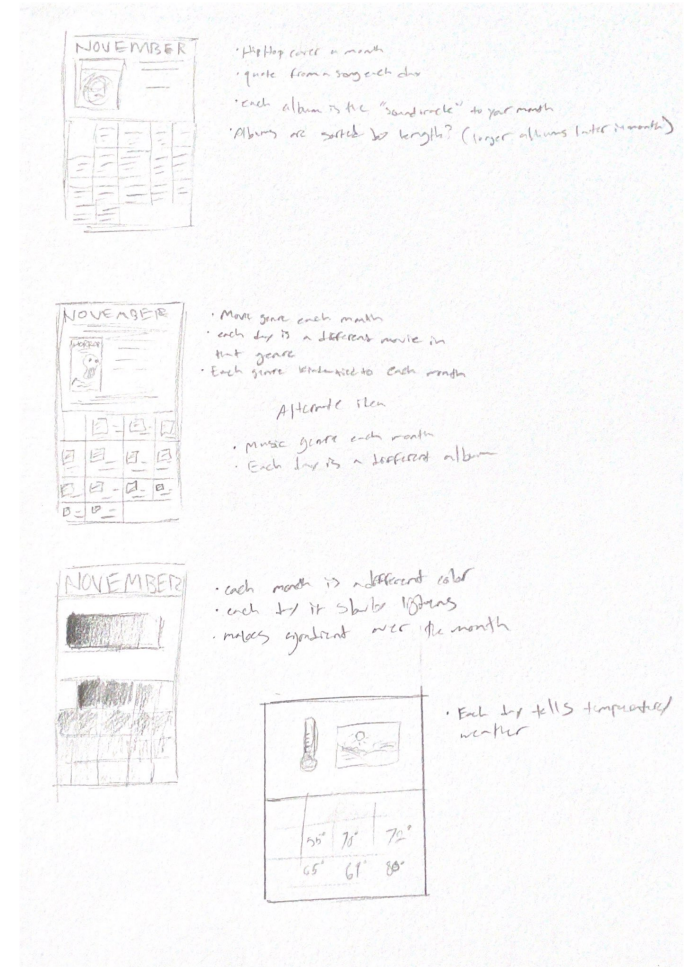 NOVEMBER
· HipHop cover a month
· quote from a song each day
· each album is the "soundtrack" to your month
· Albums are sorted by length? (longer albums later in month)
NOVEMBER
· Movie genre each month
· each day is a different movie in
that genre
· Each genre kinda tied to each month
HORROR
Alternate idea
· Music genre each month
· Each day is a different album
NOVEMBER
· each month is a different color
· each day it slowly lightens
· makes a gradient over the month
· Each day tells temperature/
weather
70° 72°
65° 69° 80°